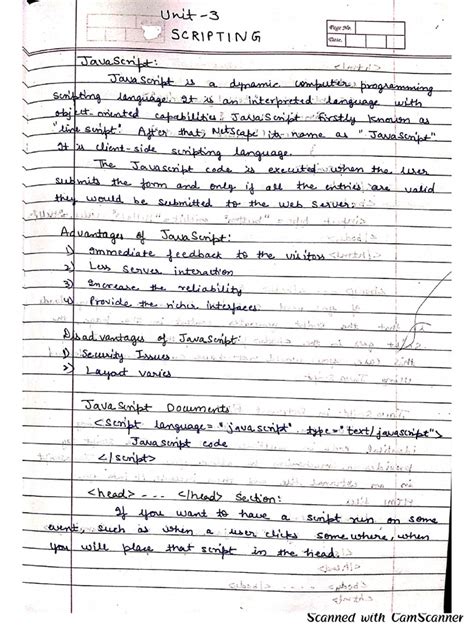 Unit-3
SCRIPTING
Page No.
Date.
JavaScript:
JavaScript is a dynamic computer programming
scripting language. It is an interpreted language with
object-oriented capabilities JavaScript firstly known as
"Line script". After that, Netscape its name as "JavaScript"
It is client-side scripting language.
The Javascript code is executed when the user
submits the form and only if all the entries are valid
they would be submitted to the web server.
Advantages of JavaScript:
1) Immediate feedback to the visitors
2) Less server interaction
3) Increase the reliability
4) Provide the richer interfaces.
Disadvantages of JavaScript:
1) Security Issues
2) Layout varies
JavaScript Documents
<Script language="javascript" type="text/javascript">
Javascript code
</script>
<head> --- </head> section:
If you want to have a script run on some
event, such as when a user clicks somewhere, when
you will place that script in the head.
Scanned with CamScanner